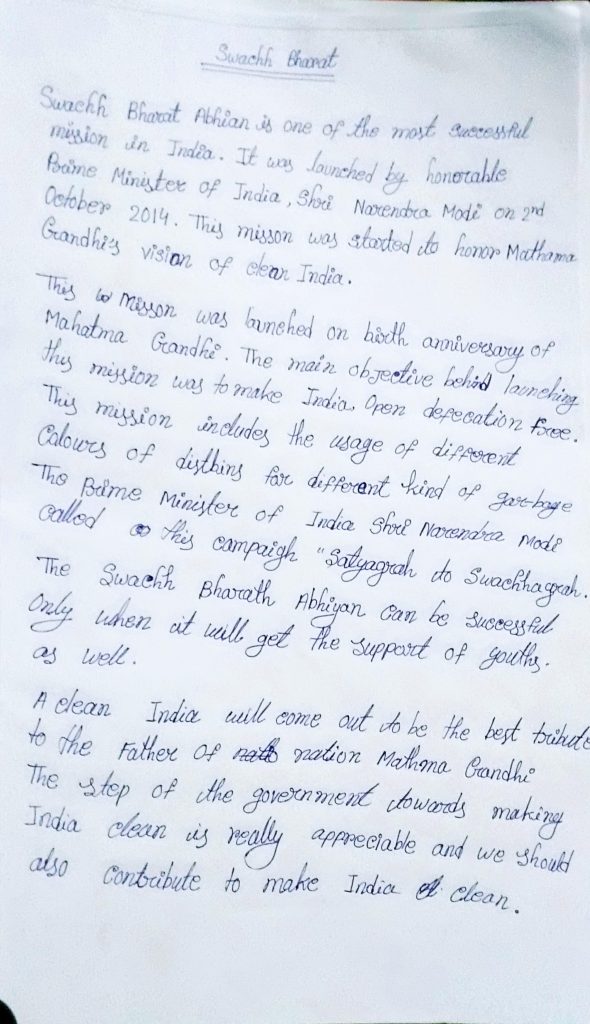 Swachh Bharat
Swachh Bharat Abhian is one of the most successful
mission in India. It was launched by honorable
Prime Minister of India, Shri Narendra Modi on 2nd
October 2014. This misson was started to honor Mathama
Grandhi's vision of clean India.
This misson was launched on birth anniversary of
Mahatma Grandhi. The main objective behind launching
this mission was to make India, Open defecation free.
This mission includes the usage of different
Colours of distbins for different kind of gar-bage
The Prime Minister of India Shri Narendra Modi
called this campaigh "Satyagrah to Swachhagrah.
The Swachh Bharath Abhiyan can be successful
Only when it will get the support of youths.
as well.
A clean India will come out to be the best tribute
to the Father of nation Mathma Grandhi
The step of the government towards making
India clean is really appreciable and we should
also contribute to make India clean.